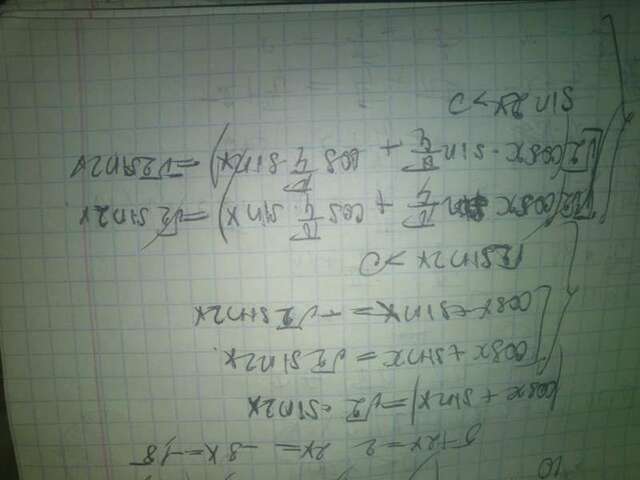 10
5+2x=2 2x= -3 x=-1,5
|cosx + sinx|=√2 · sin2x
cosx + sinx = √2 sin2x
cosx + sinx = -√2 sin2x
√2 sin2x > 0
√2(cosx sin π/4 + cos π/4 · sinx) = √2 sin2x
√2(cosx · sin π/4 + cos π/4 · sin2x) = -√2 sin2x
sin 2x > 0